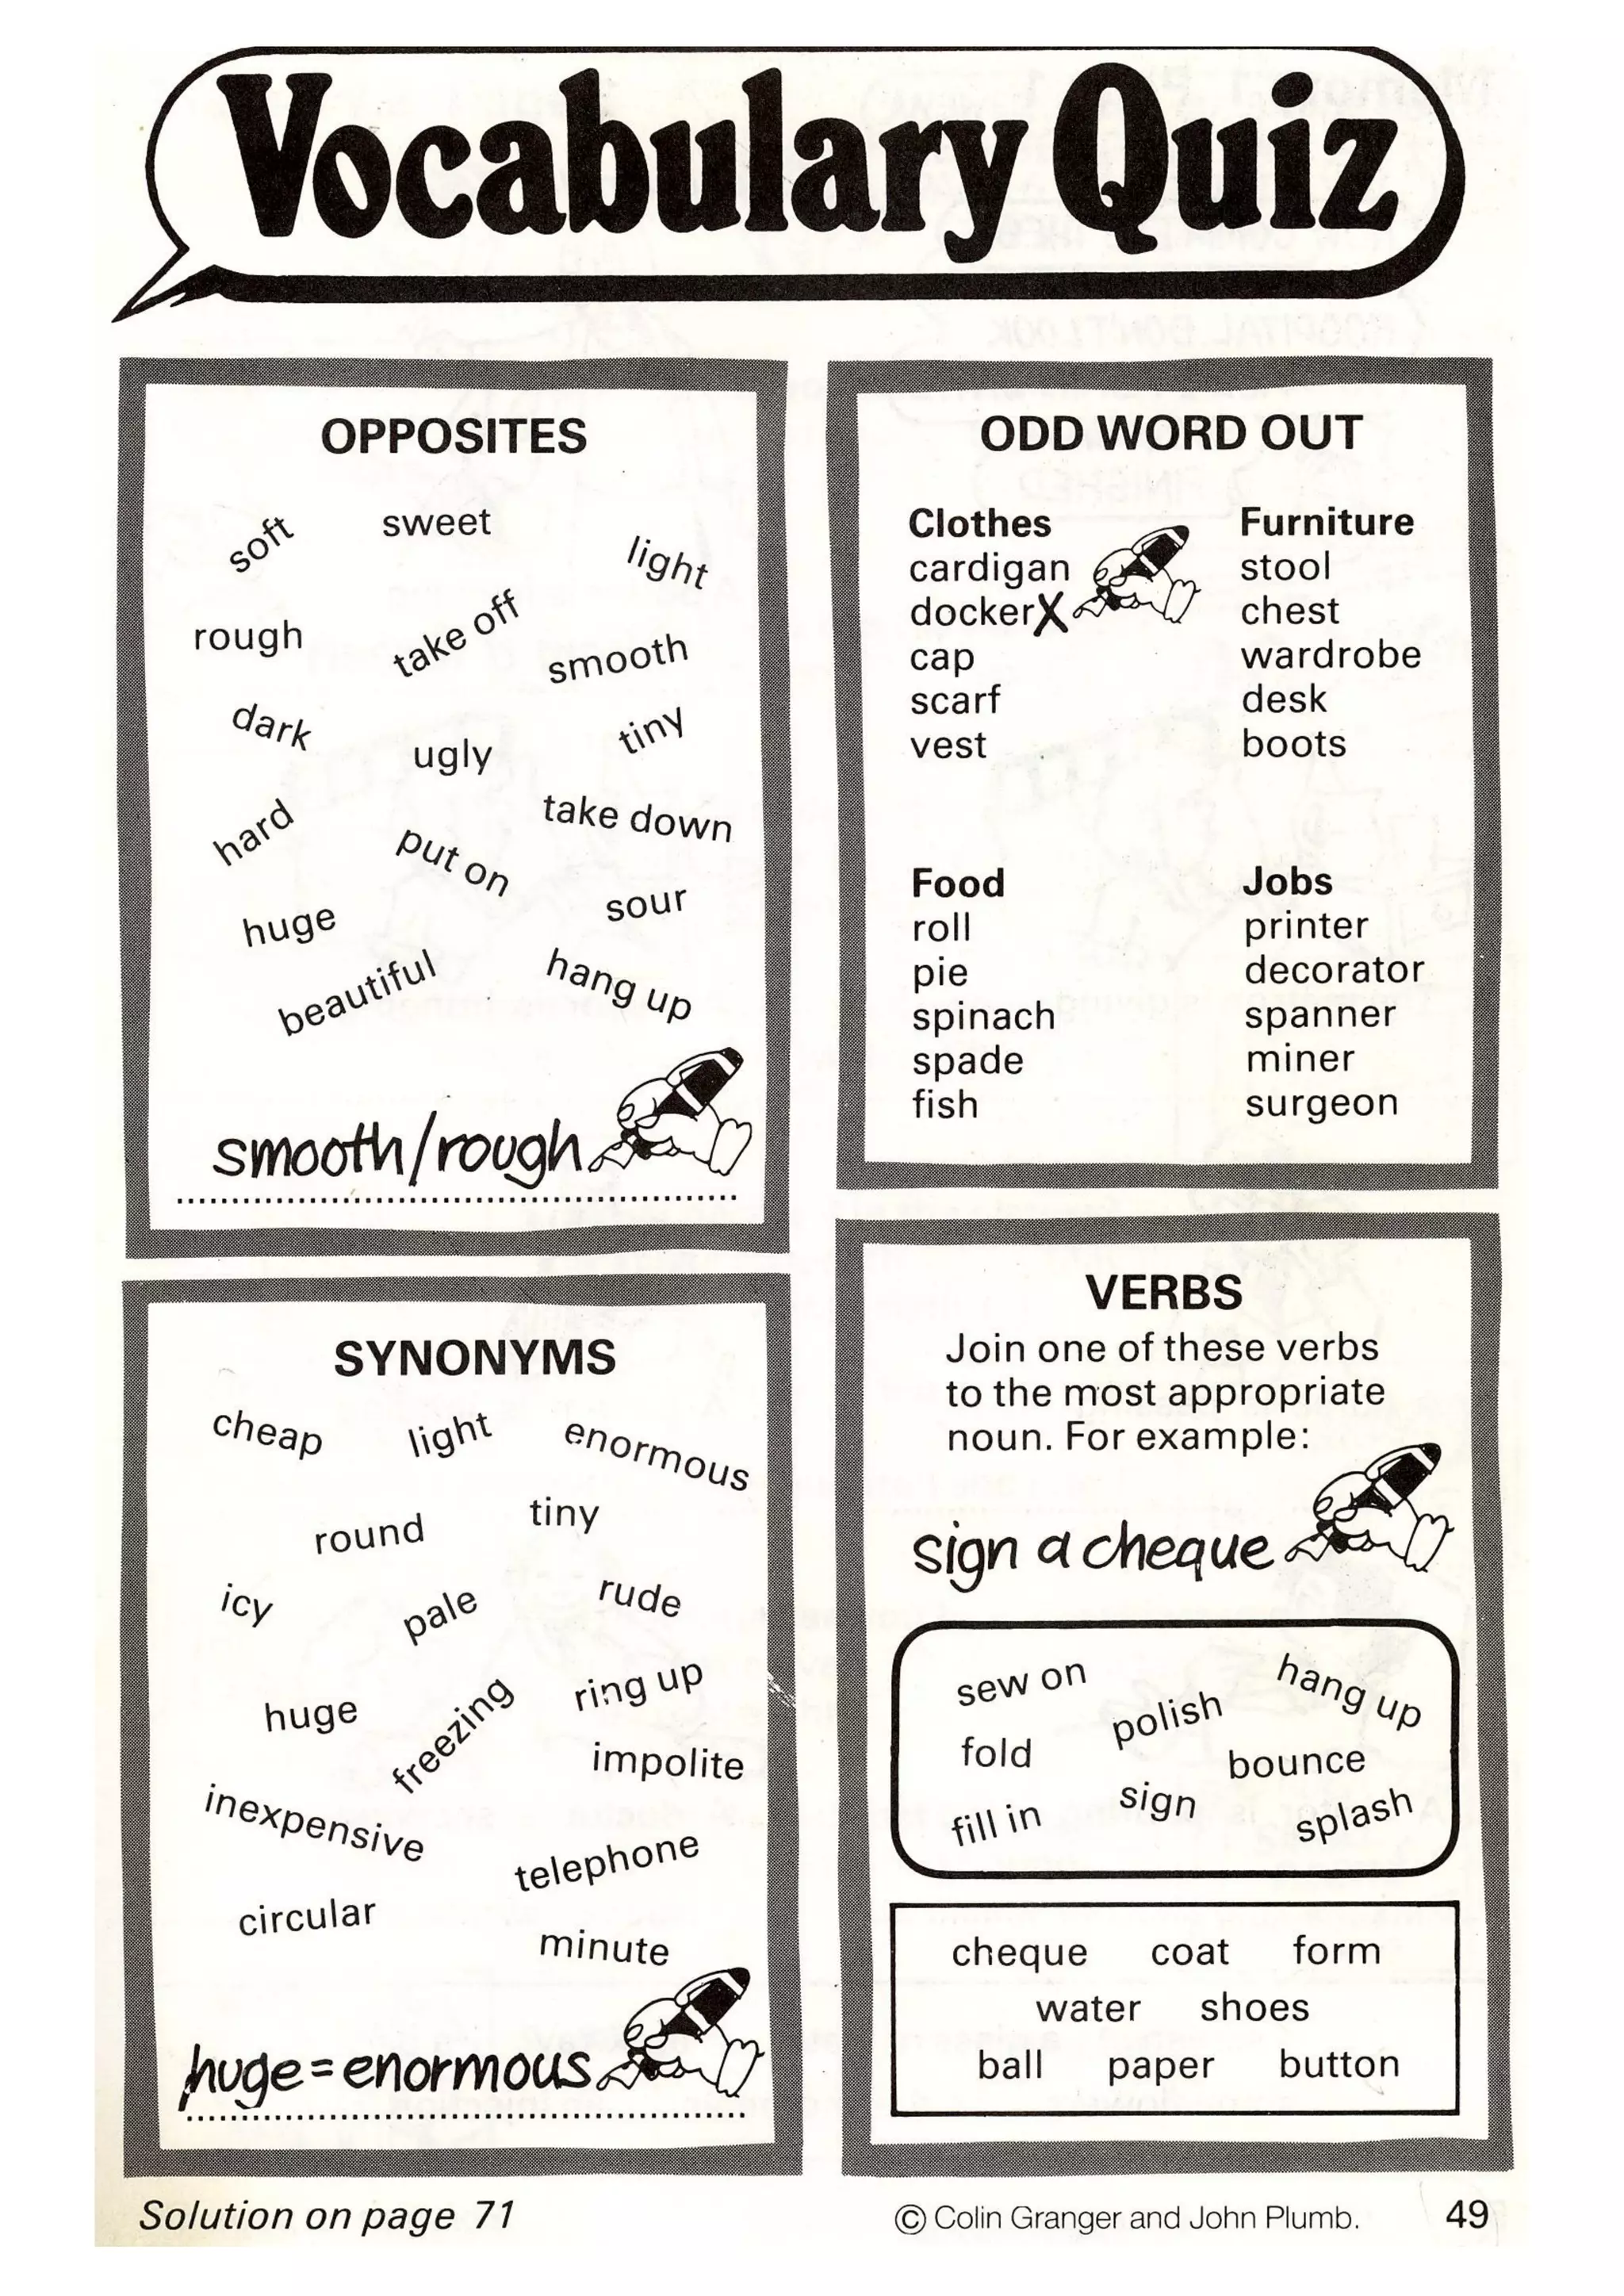 Vocabulary Quiz
OPPOSITES
soft sweet light
rough take off smooth
dark ugly tiny
hard put on take down
huge sour
beautiful hang up
smooth/rough
ODD WORD OUT
Clothes
cardigan
docker X
cap
scarf
vest
Furniture
stool
chest
wardrobe
desk
boots
Food
roll
pie
spinach
spade
fish
Jobs
printer
decorator
spanner
miner
surgeon
SYNONYMS
cheap light enormous
round tiny
icy pale rude
huge freezing ring up
impolite
inexpensive
telephone
circular
minute
huge=enormous
VERBS
Join one of these verbs
to the most appropriate
noun. For example:
sign a cheque
sew on polish hang up
fold bounce
fill in sign splash
cheque coat form
water shoes
ball paper button
Solution on page 71
© Colin Granger and John Plumb.
49